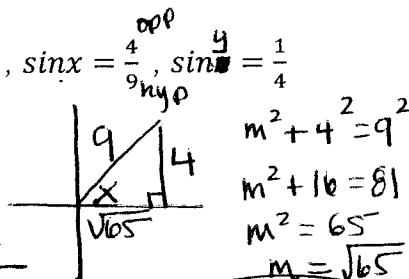 opp
, sinx = 4/9, siny = 1/4
hyp
9
4
x
√65
m² + 4² = 9²
m² + 16 = 81
m² = 65
m = √65